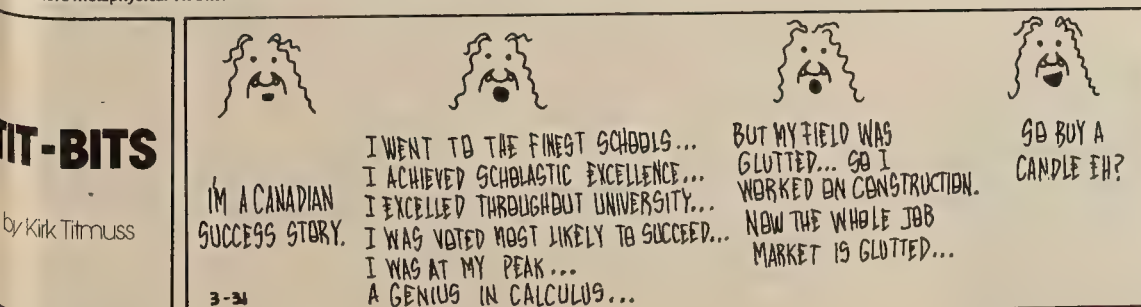 TIT-BITS
by Kirk Titmuss
I'M A CANADIAN
SUCCESS STORY.
3-31
I WENT TO THE FINEST SCHOOLS...
I ACHIEVED SCHOLASTIC EXCELLENCE...
I EXCELLED THROUGHOUT UNIVERSITY...
I WAS VOTED MOST LIKELY TO SUCCEED...
I WAS AT MY PEAK...
A GENIUS IN CALCULUS...
BUT MY FIELD WAS
GLUTTED... SO I
WORKED ON CONSTRUCTION.
NOW THE WHOLE JOB
MARKET IS GLUTTED...
SO BUY A
CANDLE EH?